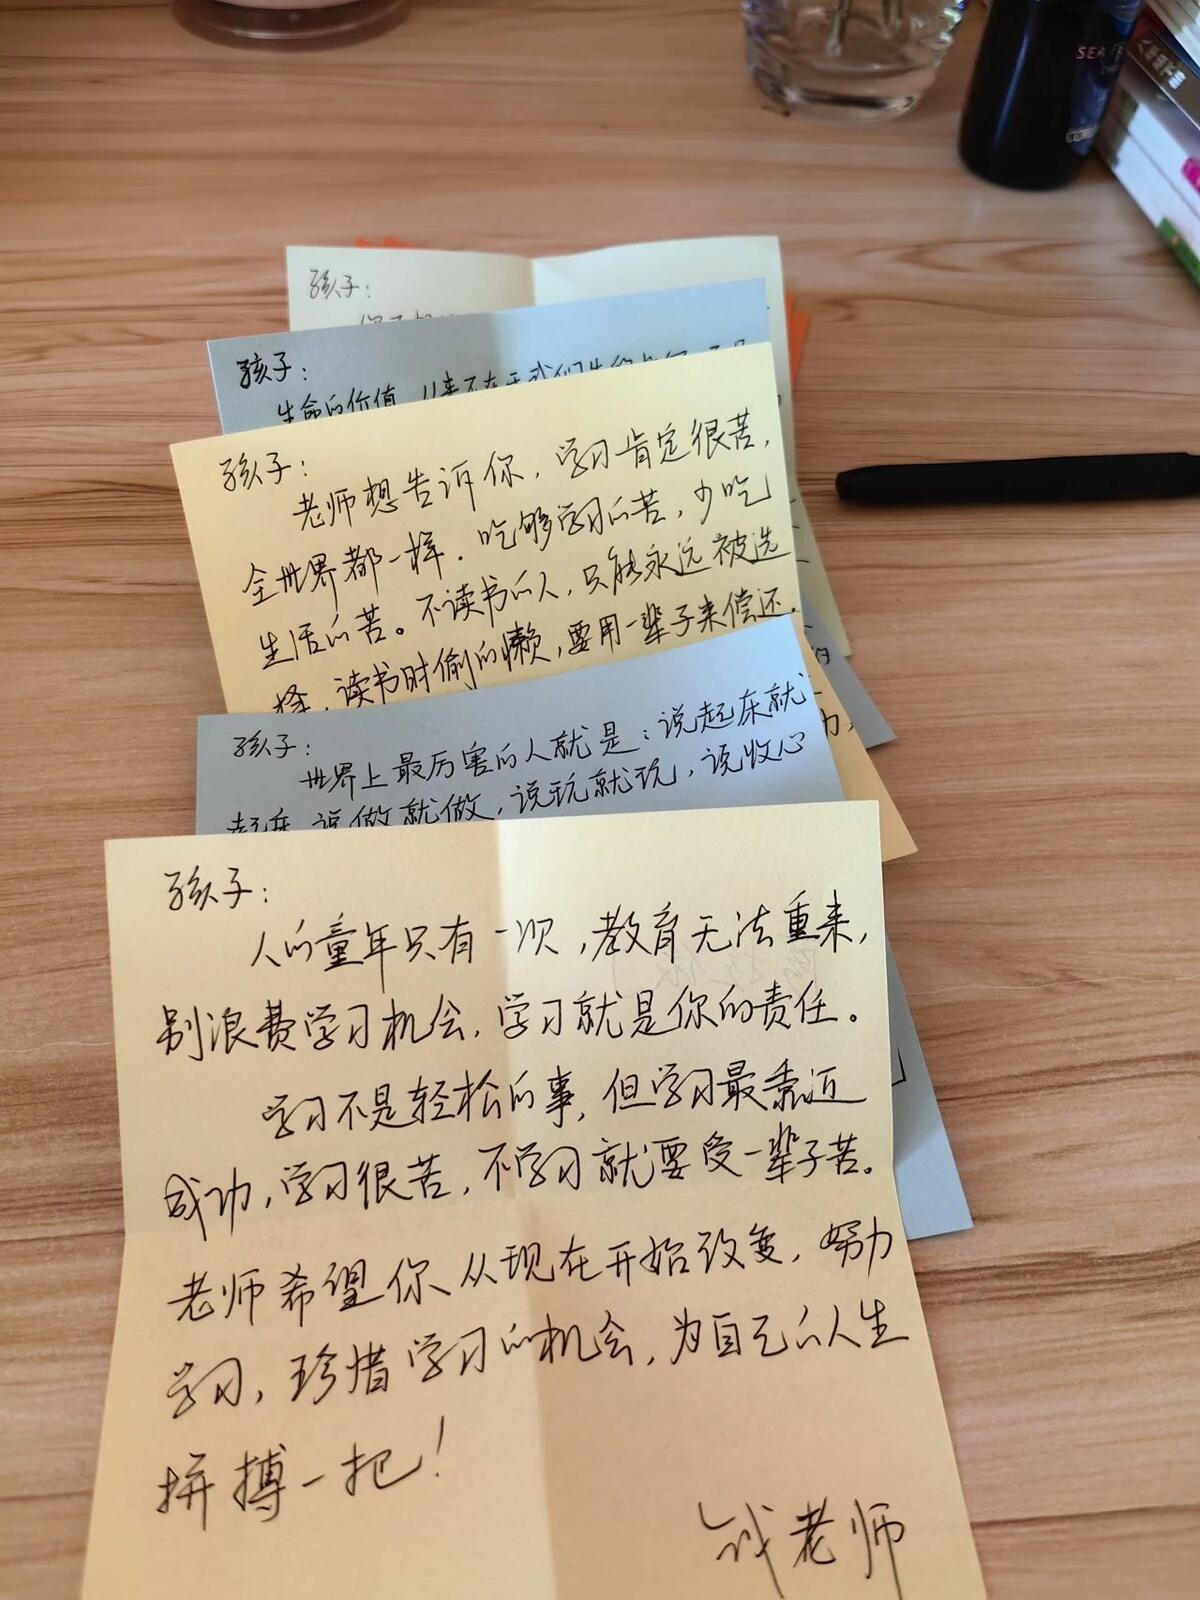 孩子：
孩子：
生命的价值，从来不在于我们
孩子：
老师想告诉你，学习肯定很苦，
全世界都一样。吃够学习的苦，少吃
生活的苦。不读书的人，只能永远被选
择，读书时偷的懒，要用一辈子来偿还。
孩子：
世界上最厉害的人就是：说起床就
起床，说做就做，说玩就玩，说收心
孩子：
人的童年只有一次，教育无法重来，
别浪费学习机会，学习就是你的责任。
学习不是轻松的事，但学习最靠近
成功，学习很苦，不学习就要受一辈子苦。
老师希望你从现在开始改变，努力
学习，珍惜学习的机会，为自己的人生
拼搏一把！
钱老师
SEA